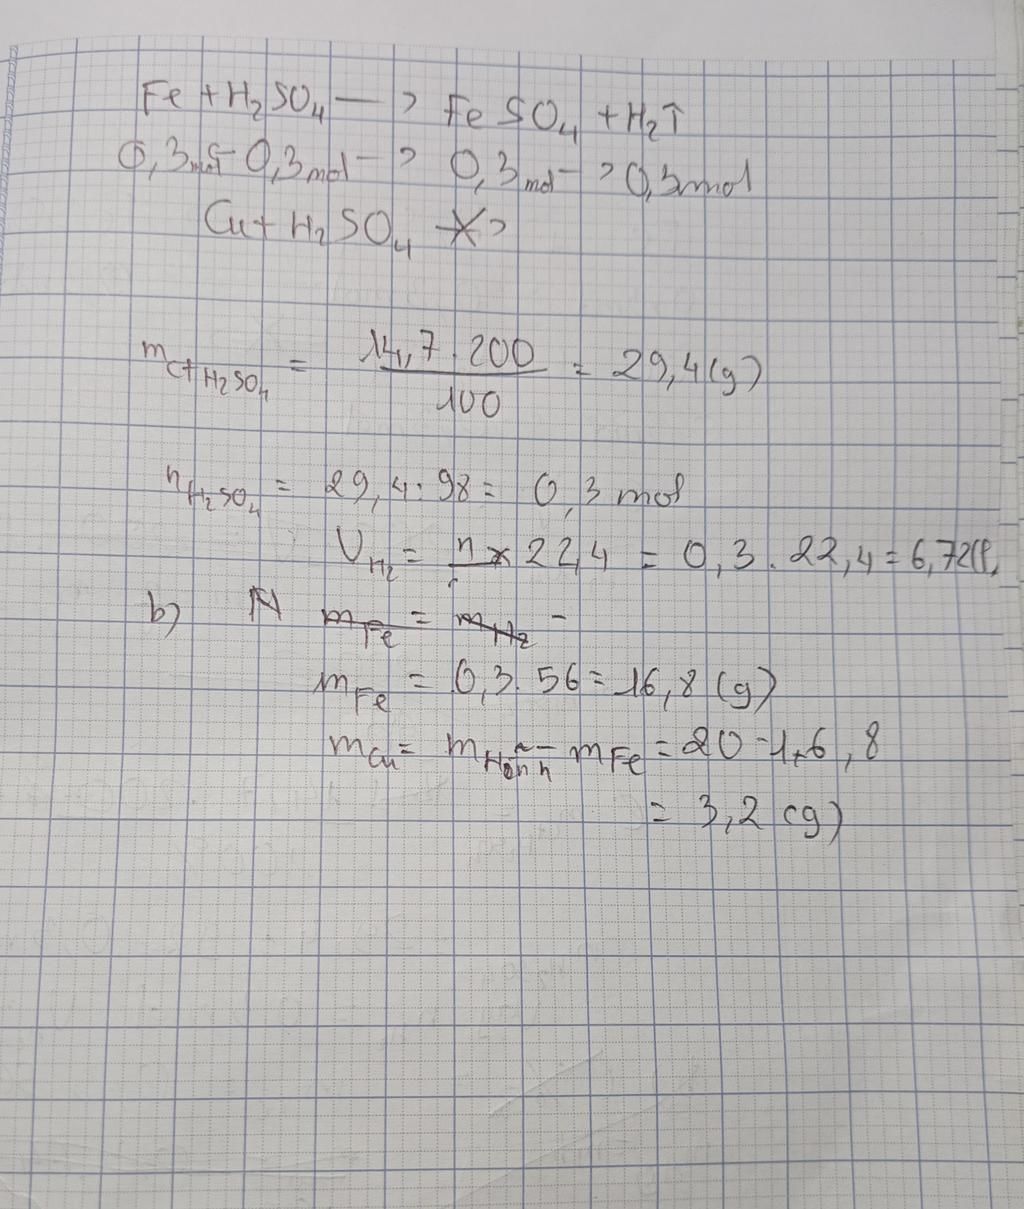 Fe + H₂SO₄ —> FeSO₄ + H₂↑
0,3mol 0,3mol -> 0,3mol -> 0,3mol
Cu + H₂SO₄ -X>
mct H₂SO₄ = 14,7 . 200 / 100 = 29,4 (g)
nH₂SO₄ = 29,4 : 98 = 0,3 mol
VH₂ = n x 22,4 = 0,3 . 22,4 = 6,72(l)
b) mFe = mH₂ -
mFe = 0,3 . 56 = 16,8 (g)
mCu = mHỗn h - mFe = 20 - 16,8
= 3,2 (g)